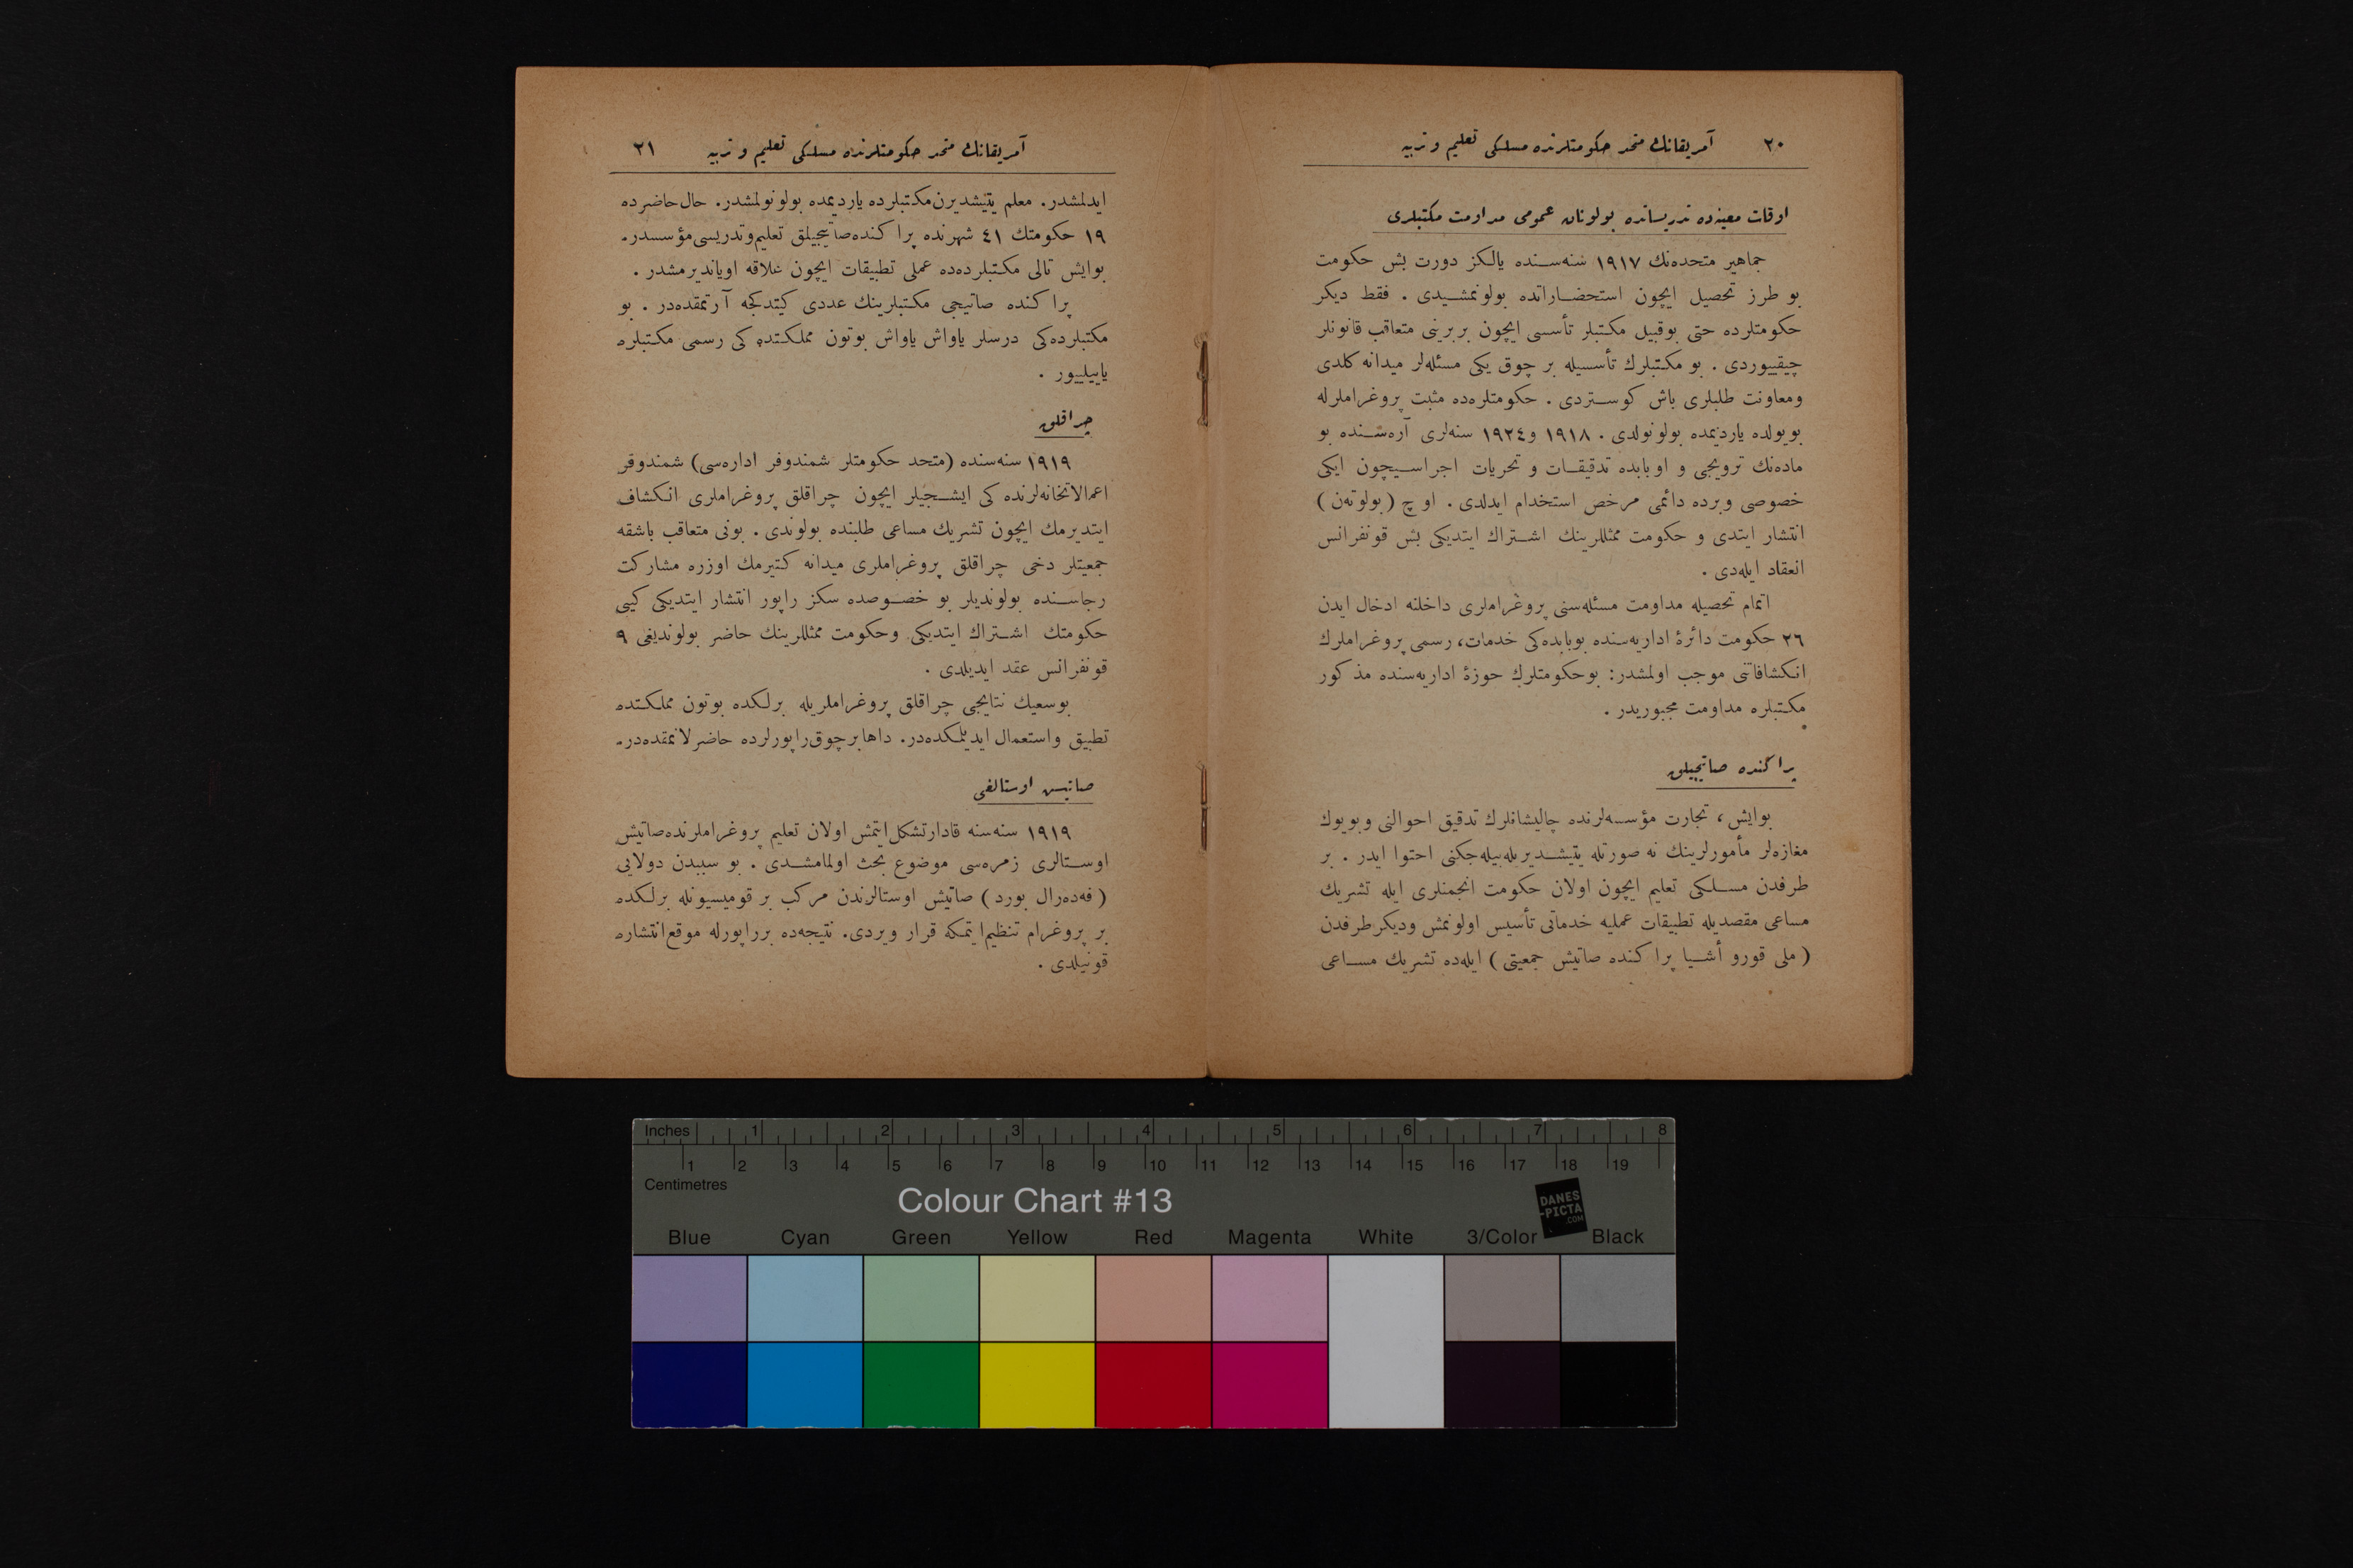 ٢٠ آمریقانك متحد حكومتلرنده مسلكی تعلیم و تربیه
اوقات معینه‌ده تدریساتده بولونان عمومی مداومت مكتبلری
جماهیر متحده‌نك ١٩١٧ سنه‌سـنده یالكز دورت بش حكومت
بو طرز تحصیل ایچون استحضـاراتده بولونمشـیدی . فقط دیكر
حكومتلرده حتی بوقبیل مكـتبلر تأسسی ایچون بربرینی متعاقب قانونلر
چیقیوردی . بو مكـتبلرك تأسسیله بر چوق یكی مسئله‌لر میدانه كلدی
ومعاونت طلبلری باش كوسـتردی . حكومتلره‌ده مثبت پروغراملرله
بویولده یاردیمده بولونولدی . ١٩١٨ و١٩٢٤ سنه‌لری آره‌سـنده بو
ماده‌نك ترویجی و اوبابده تدقیقـات و تحریات اجراسـیچون ایكی
خصوصی وبرده دائمی مرخص استخدام ایدلدی . اوچ (بولوته‌ن)
انتشار ایتدی و حكومت ممثللرینك اشـتراك ایتدیكی بش قونفرانس
انعقاد ایله‌دی .
اتمام تحصیله مداومت مسئله‌سنی پروغراملری داخلنه ادخال ایدن
٢٦ حكومت دائرۀ اداریه‌سنده بوبابده‌كی خدمات، رسمی پروغراملرك
انـكشافاتنی موجب اولمشدر: بوحكومتلرك حوزۀ اداریه‌سنده مذكور
مكـتبلره مداومت مجبوریدر .
پراكنده صاتیجیلق
بوایش، تجارت مؤسسه‌لرنده چالیشانلرك تدقیق احوالنی وبویوك
مغازه‌لر مأمورلرینك نه صورتله یتیشـدیریله‌بیله‌جكنی احتوا ایدر . بر
طرفدن مسـلكی تعلیم ایچون اولان حكومت انجمنلری ایله تشریك
مساعی مقصدیله تطبیقات عملیه خدماتی تأسیس اولونمش ودیكر طرفدن
(ملی قورو أشـیا پراكنده صاتیش جمعیتی) ایله‌ده تشریك مسـاعی
آمریقانك متحد حكومتلرنده مسلكی تعلیم و تربیه ٢١
ایدلمشدر. معلم یتیشدیرن مكـتبلرده یاردیمده بولونولمشدر. حال حاضرده
١٩ حكومتك ٤١ شهرنده پراكنده صاتیجیلق تعلیم وتدریسی مؤسسدر.
بوایش تالی مكـتبلرده‌ده عملی تطبیقات ایچون علاقه اویاندیرمشدر .
پراكنده صاتیجی مكـتبلرینك عددی كیتدكجه آرتمقده‌در . بو
مكتبلرده‌كی درسلر یاواش یاواش بوتون مملـكـتده‌كی رسمی مكـتبلره
یاییلییور .
چراقلق
١٩١٩ سنه‌سنده (متحد حكومتلر شمندوفر اداره‌سی) شمندوفر
اعمالاتخانه‌لرنده كی ایشـجیلر ایچون چراقلق پروغراملری انـكشاف
ایتدیرمك ایچون تشریك مساعی طلبنده بولوندی . بونی متعاقب باشقه
جمعیتلر دخی چراقلق پروغراملری میدانه كتیرمك اوزره مشاركت
رجاسـنده بولوندیلر بو خصـوصده سكز راپور انتشار ایتدیكی كبی
حكومتك اشـتراك ایتدیكی وحكومت ممثللرینك حاضر بولوندیغی ٩
قونفرانس عقد ایدیلدی .
بوسعیك نتایجی چراقلق پروغراملریله برلـكده بوتون مملـكـتده
تطبیق واستعمال ایدیلمكده‌در. داها برچوق راپورلرده حاضرلانمقده‌در.
صاتیش اوستالغی
١٩١٩ سنه‌سنه قادار تشكل ایتمش اولان تعلیم پروغراملرنده صاتیش
اوسـتالری زمره‌سی موضوع بحث اولمامشـدی . بو سببدن دولایی
(فه‌ده‌رال بورد) صاتیش اوستالرندن مركب بر قومیسیونله برلـكده
بر پروغرام تنظیم ایتمكه قرار ویردی. نتیجه‌ده برراپورله موقع انتشاره
قونیلدی .
Inches 1 2 3 4 5 6 7 8
1 2 3 4 5 6 7 8 9 10 11 12 13 14 15 16 17 18 19
Centimetres
Colour Chart #13
DANES
-PICTA
.COM
Blue Cyan Green Yellow Red Magenta White 3/Color Black